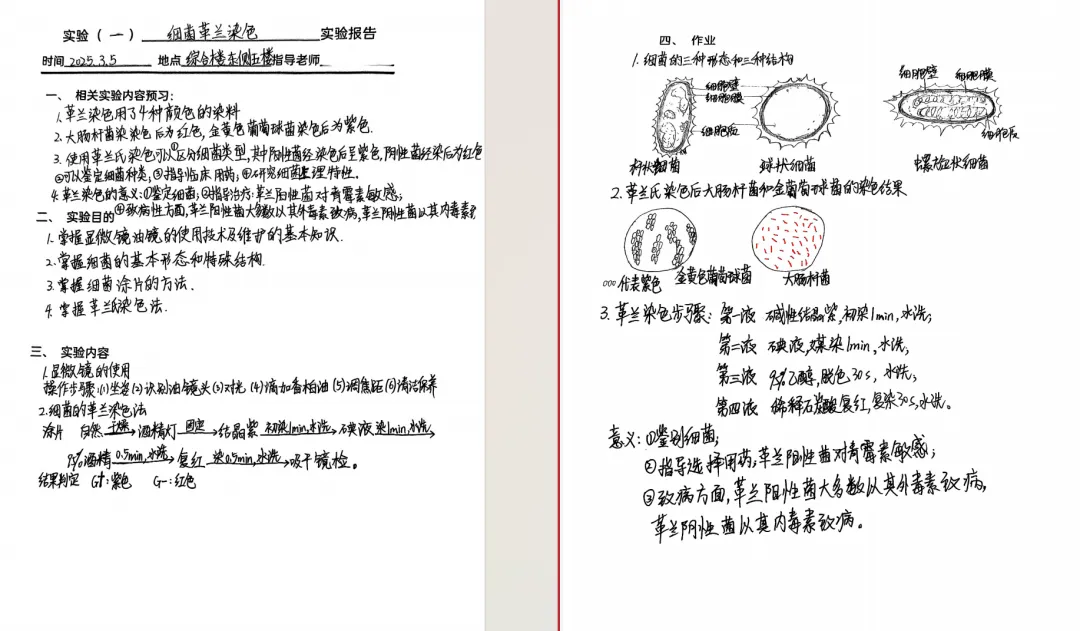 实验（一） 细菌革兰染色 实验报告
时间 2025.3.5 地点 综合楼东侧五楼 指导老师
一、 相关实验内容预习：
1. 革兰染色用了4种颜色的染料
2. 大肠杆菌染色后为红色，金黄色葡萄球菌染色后为紫色.
3. 使用革兰氏染色可以①区分细菌类型，其中阳性菌经染色后呈紫色，阴性菌经染后为红色
②可以鉴定细菌种类，③指导临床用药，④研究细菌生理特性。
4. 革兰染色的意义：①鉴定细菌；②指导治疗：革兰阳性菌对青霉素敏感；
④致病性方面，革兰阳性菌大多数以其外毒素致病，革兰阴性菌以其内毒素
二、 实验目的
1. 掌握显微镜油镜的使用技术及维护的基本知识.
2. 掌握细菌的基本形态和特殊结构.
3. 掌握细菌涂片的方法.
4. 掌握革兰氏染色法.
三、 实验内容
1. 显微镜的使用
操作步骤：(1)坐姿(2)识别油镜头(3)对光 (4)滴加香柏油 (5)调焦距(6)清洁保养
2. 细菌的革兰染色法
涂片 自然干燥→酒精灯固定→结晶紫 初染1min,水洗→碘液染1min,水洗→
95%酒精 0.5min,水洗→复红 染0.5min,水洗→吸干镜检。
结果判定 G+:紫色 G-:红色
四、 作业
1. 细菌的三种形态和三种结构
细胞壁
细胞膜
细胞质
细胞壁 细胞膜
细胞质
杆状细菌 球状细菌 螺旋状细菌
2. 革兰氏染色后大肠杆菌和金黄葡萄球菌的染色结果
000代表紫色 金黄色葡萄球菌 大肠杆菌
3. 革兰染色步骤：第一液 碱性结晶紫，初染1min，水洗；
第二液 碘液，媒染1min，水洗，
第三液 95%乙醇，脱色30s，水洗；
第四液 稀释石炭酸复红，复染30s，水洗。
意义：①鉴别细菌；
②指导选择用药，革兰阳性菌对青霉素敏感；
③致病方面，革兰阳性菌大多数以其外毒素致病，
革兰阴性菌以其内毒素致病。